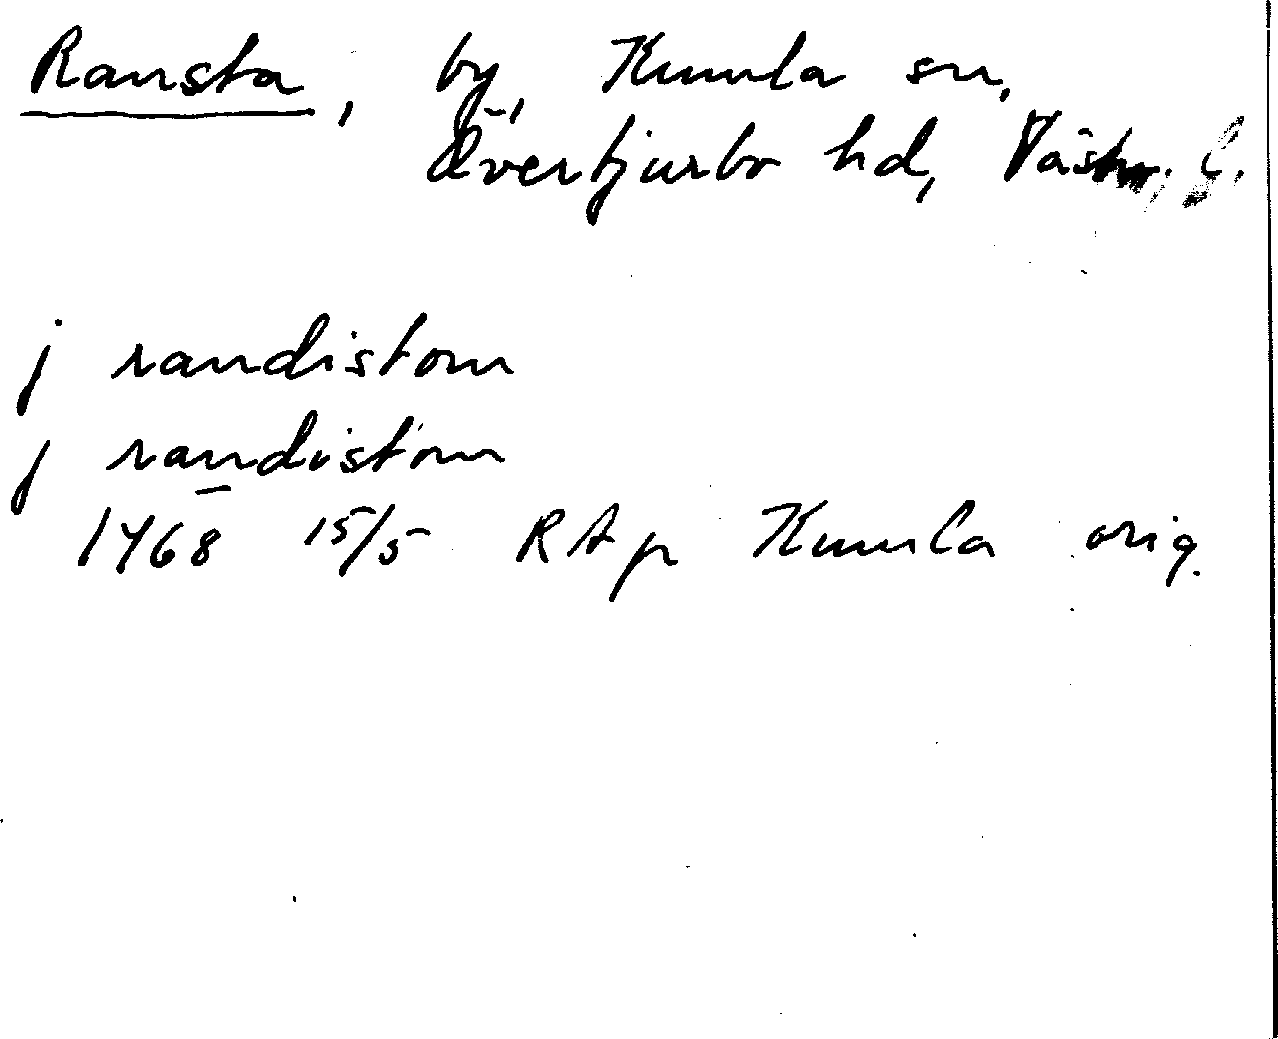 Ransta, by, Kumla sn,
Övertjurbo hd, Västm. l.
j randistom
j randistom
1468 15/5 RAp Kumla orig.